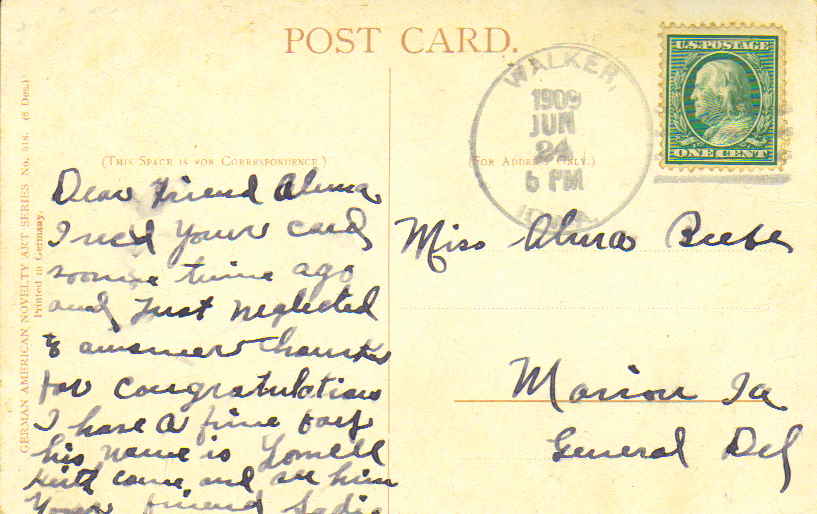 POST CARD.
WALKER,
1909
JUN
24
6 PM
IOWA
U.S. POSTAGE
ONE CENT
(THIS SPACE IS FOR CORRESPONDENCE.)
(FOR ADDRESS ONLY.)
GERMAN AMERICAN NOVELTY ART SERIES No. 818. (6 Des.)
Printed in Germany.
Dear Friend Alma
I recd Your card
some time ago
and Just neglected
to answer thanks
for congratulations
I have a fine boy
his name is Lowell
Keith come and see him
Your friend Sadie
Miss Alma Beebe
Marion Ia
General Del